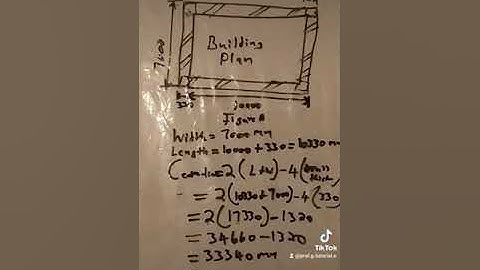 Building
Plan
7000
330
10000
Figure A
Width = 7000 mm
Length = 10000 + 330 = 10330 mm
= 2(L+W) - 4(
= 2(10330 + 7000) - 4(330
= 2(17330) - 1320
= 34660 - 1320
= 33340 mm
TikTok